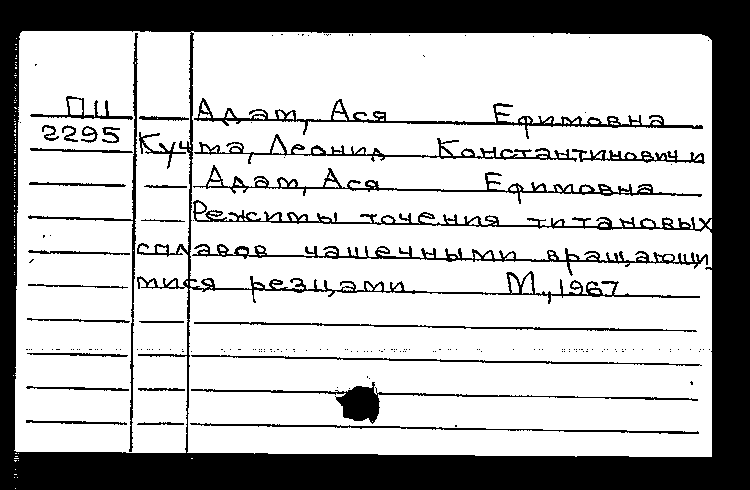 ПЦ Адам, Ася Ефимовна
2295 Кучма, Леонид Константинович и
Адам, Ася Ефимовна
Режимы точения титановых
сплавов чашечными вращающи-
мися резцами. М., 1967.